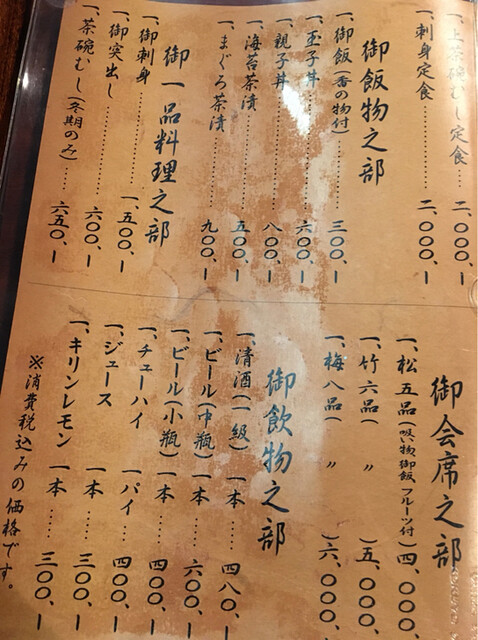 一、上茶碗むし定食……二、〇〇〇、ー
一、刺身定食……二、〇〇〇、ー
御飯物之部
一、御飯(香の物付)……三〇〇、ー
一、玉子丼……六〇〇、ー
一、親子丼……八〇〇、ー
一、海苔茶漬……五〇〇、ー
一、まぐろ茶漬……九〇〇、ー
御一品料理之部
一、御刺身……一、五〇〇、ー
一、御突出し……六〇〇、ー
一、茶碗むし(冬期のみ)……六五〇、ー
御会席之部
一、松五品(吸い物御飯フルーツ付)四、〇〇〇
一、竹六品(〃)五、〇〇〇、
一、梅八品(〃)六、〇〇〇、
御飲物之部
一、清酒(一級)一本……四八〇、ー
一、ビール(中瓶)一本……六〇〇、ー
一、ビール(小瓶)一本……四〇〇、ー
一、チューハイ 一パイ…四〇〇、ー
一、ジュース 一本……三〇〇、ー
一、キリンレモン 一本……三〇〇、ー
※消費税込みの価格です。